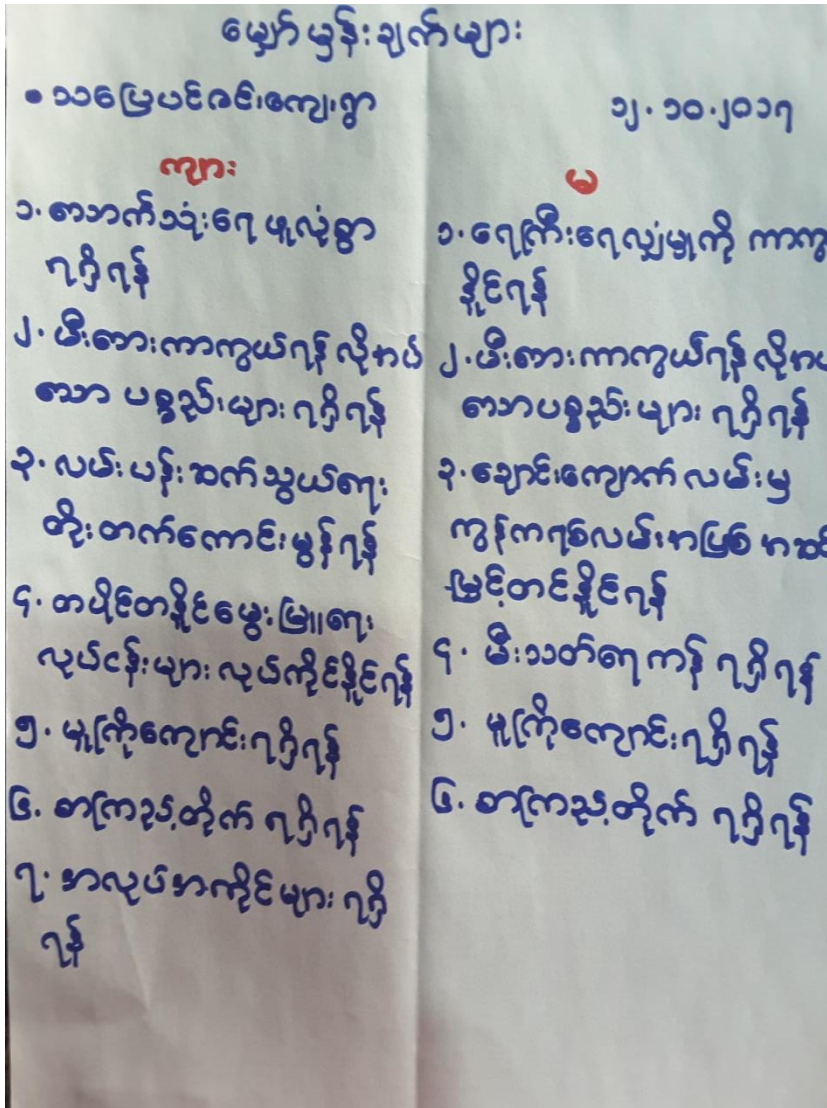 မျှော်မှန်းချက်များ
• သပြေပင်ဇင်းကျေးရွာ
၁၂.၁၀.၂၀၁၇
ကျား
၁. သောက်သုံးရေ ဖူလုံစွာ
ရရှိရန်
၂. မီးဘေးကာကွယ်ရန် လိုအပ်
သော ပစ္စည်းများ ရရှိရန်
၃. လမ်းပန်းဆက်သွယ်ရေး
တိုးတက်ကောင်းမွန်ရန်
၄. တပိုင်တနိုင်မွေးမြူရေး
လုပ်ငန်းများ လုပ်ကိုင်နိုင်ရန်
၅. မူကြိုကျောင်းရရှိရန်
၆. စာကြည့်တိုက် ရရှိရန်
၇. အလုပ်အကိုင်များ ရရှိ
ရန်
မ
၁. ရေကြီးရေလျှံမှုကို ကာကွ
နိုင်ရန်
၂. မီးဘေးကာကွယ်ရန် လိုအပ
သောပစ္စည်းများ ရရှိရန်
၃. ချောင်းကျောက်လမ်းမှ
ကွန်ကရစ်လမ်းအဖြစ် အဆင်
မြှင့်တင်နိုင်ရန်
၄. မီးသတ်ရေကန် ရရှိရန်
၅. မူကြိုကျောင်းရရှိရန်
၆. စာကြည့်တိုက် ရရှိရန်